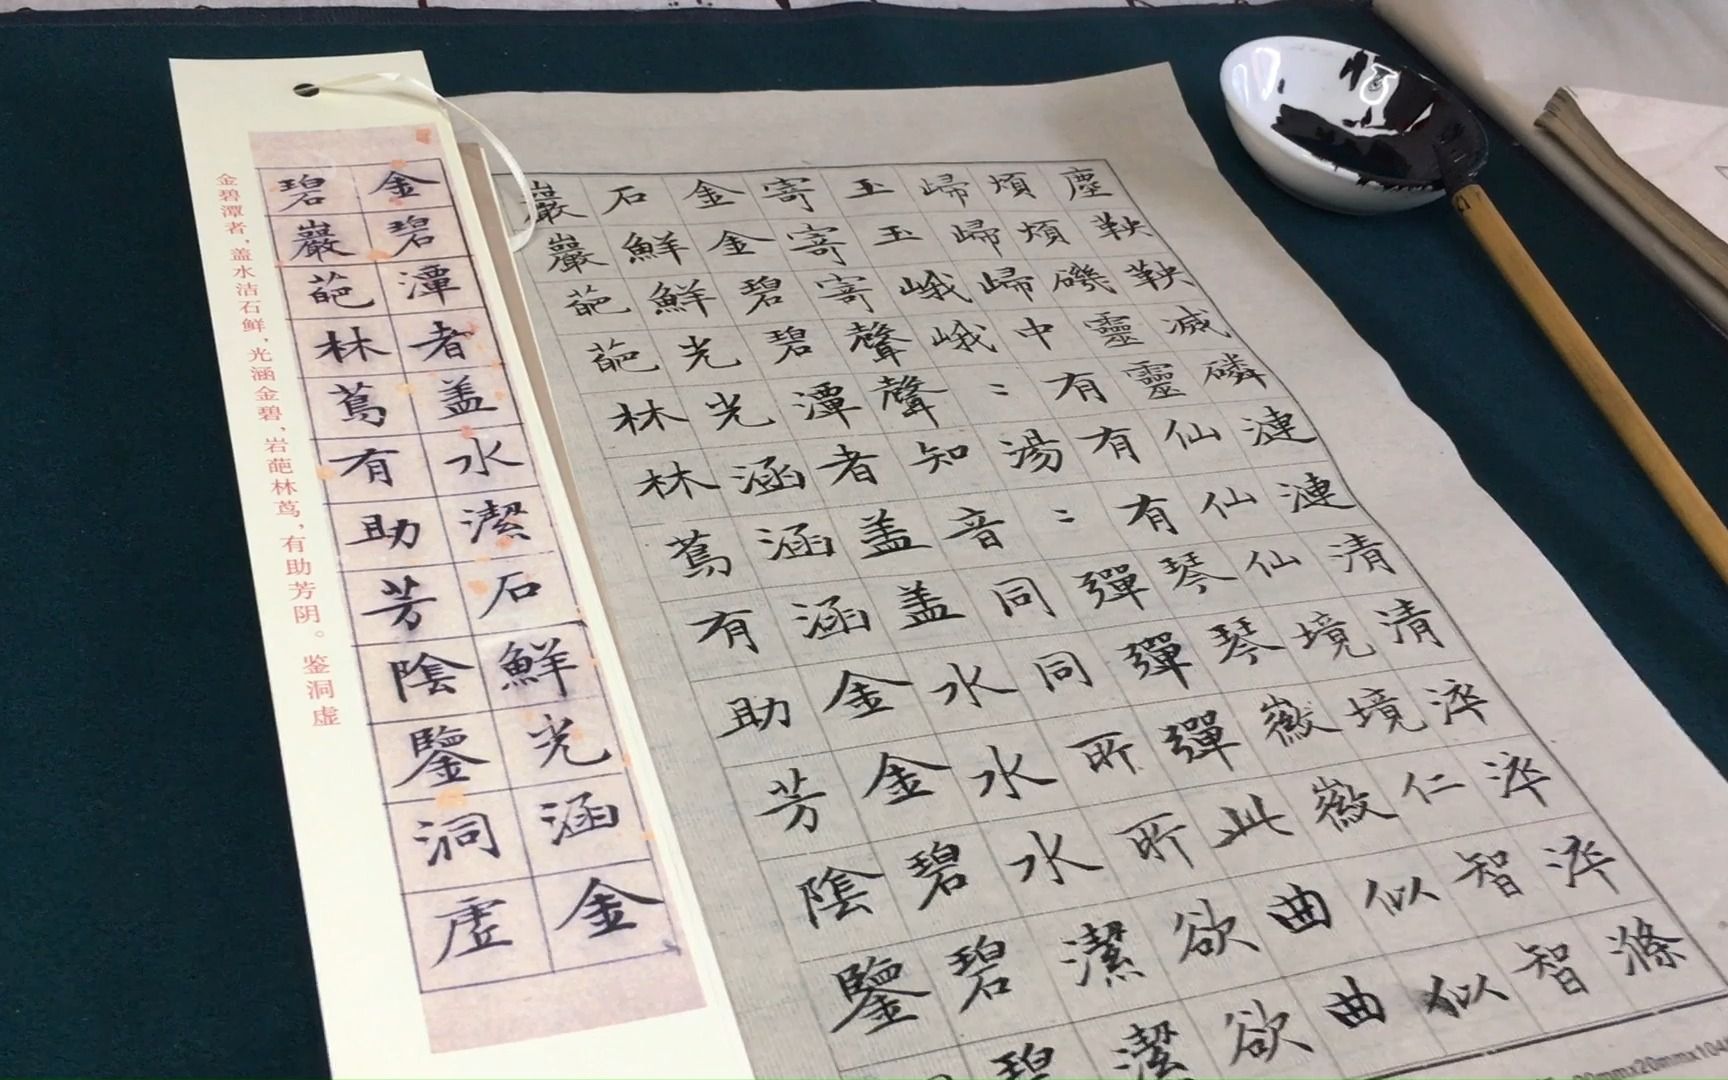 金碧潭者盖水潔石鮮光涵金
碧巖葩林蔦有助芳陰鑒洞虛
金碧潭者，盖水洁石鲜，光涵金碧，岩葩林茑，有助芳阴。鉴洞虚
塵鞅鞅减磷漣漣清清淬淬淬滌
煩煩磯靈靈仙仙仙境境仁智智
歸歸歸中有有有琴琴徽徽似似
玉玉峨峨：湯：彈彈彈此曲曲
寄寄寄聲聲知音同同所所欲欲
金金碧碧潭者盖盖水水水潔潔
石鮮鮮光光涵涵涵金金碧碧碧
巖巖葩葩林林蔦有助芳陰鑒